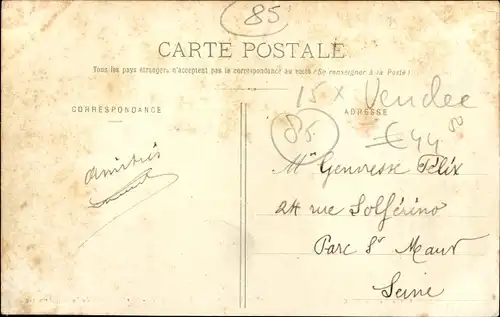 85
CARTE POSTALE
Tous les pays étrangers n'acceptent pas la correspondance au verso (Se renseigner à la Poste)
15 x Vendee
CORRESPONDANCE
ADRESSE
85.
€ 44 00
Félix
24 rue Solférino
Parc St Maur
Seine